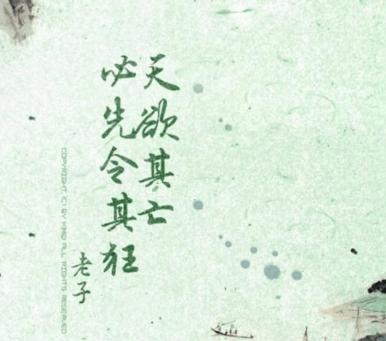 天欲其亡
必先令其狂
老子
COPYRIGHT (C) BY KING ALL RIGHTS RESERVED